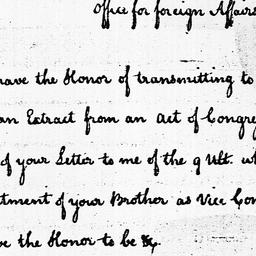 Office for foreign Affairs
have the Honor of transmitting to
an Extract from an Act of Congre
of your Letter to me of the 9 Ult. w
tment of your Brother as Vice Con
ve the Honor to be &c